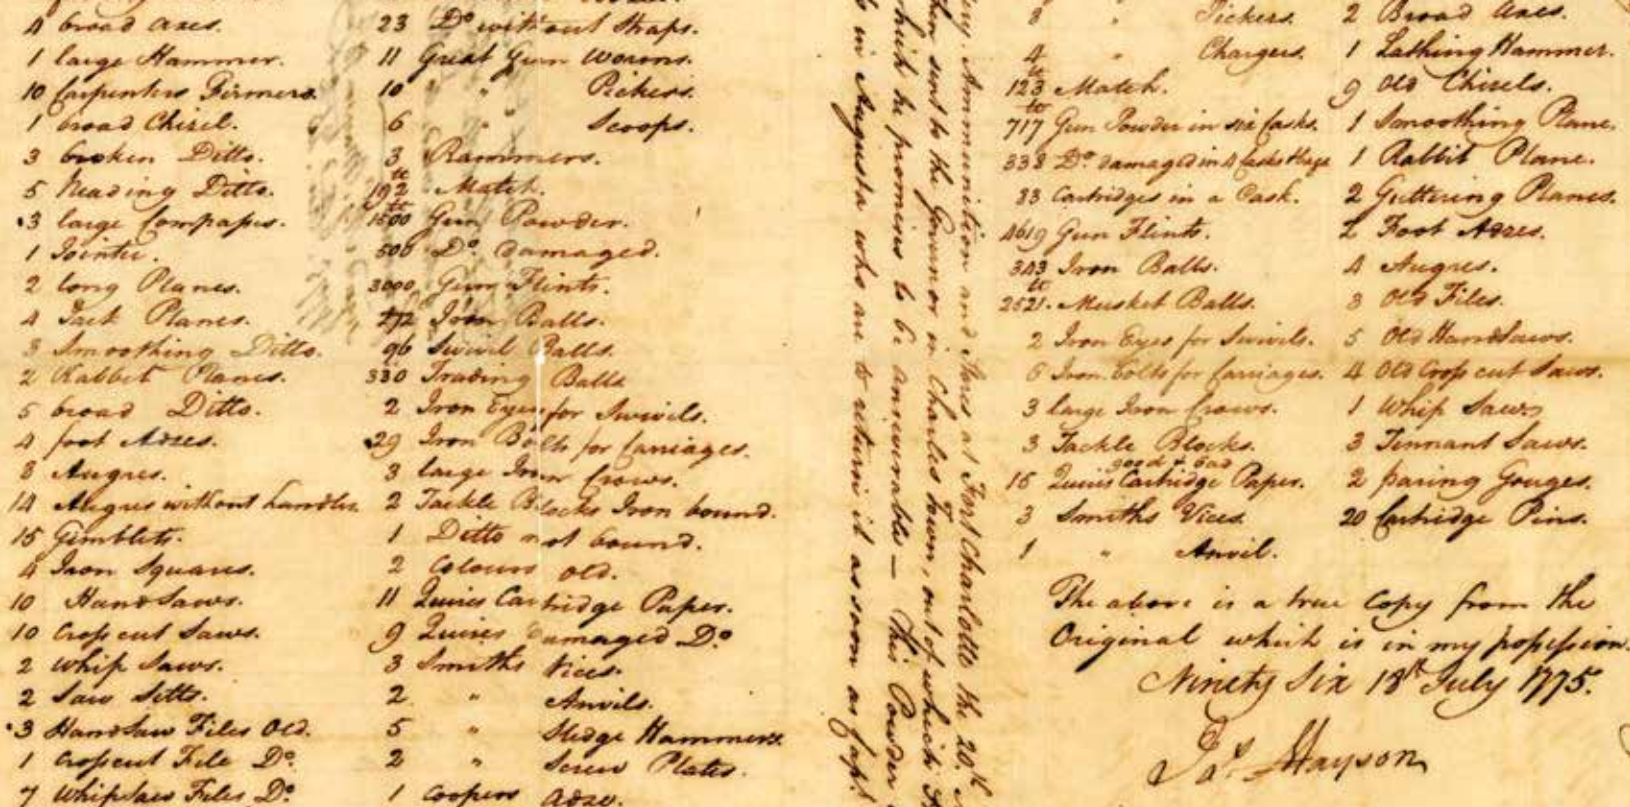 4 broad axes.
1 large Hammer.
10 Carpenters Firmers.
1 broad Chisel.
3 broken Ditto.
5 Heading Ditto.
3 large Compasses.
1 Jointer.
2 long Planes.
4 Jack Planes.
3 Smoothing Ditto.
2 Rabbet Planes.
5 broad Ditto.
4 foot Adzes.
8 Augres.
14 Augres without handles.
15 Gimblets.
4 Iron Squares.
10 Hand Saws.
10 Cross cut Saws.
2 Whip Saws.
2 Saw Setts.
3 Hand Saw Files Old.
1 Cross cut File Do.
7 Whip Saw Files Do.
23 Do without Straps.
11 Great Gun Worms.
10 " Pickers.
6 " Scoops.
3 Rammers.
192 lb Match.
1500 lb Gun Powder.
500 Do. Damaged.
3000 Gun Flints.
Iron Balls.
96 Swivil Balls.
330 Trading Balls
2 Iron Eyes for Swivils.
29 Iron Bolts for Carriages.
3 large Iron Crows.
2 Tackle Blocks Iron bound.
1 Ditto not bound.
2 Colours Old.
11 Quires Cartridge Paper.
9 Quires Damaged Do
3 Smiths Vices.
2 " Anvils.
5 " Sledge Hammers.
2 " Screw Plates.
1 Coopers Adze.
Ammunition and Stores at Fort Charlotte the 20th
sent to the Governor in Charles Town, out of which
which he promises to be answerable — this Powder
in Augusta who are to return it as soon as
8 " Pickers.
4 " Chargers.
123 lb Match.
717 lb Gun Powder in six Casks.
338 Do. damaged in 4 Casks
83 Cartridges in a Cask.
4619 Gun Flints.
343 Iron Balls.
2521 lb Musket Balls.
2 Iron Eyes for Swivils.
6 Iron bolts for Carriages.
3 large Iron Crows.
3 Tackle Blocks.
good & bad
16 Quires Cartridge Paper.
3 Smiths Vices.
1 " Anvil.
2 Broad axes.
1 Lathing Hammer.
9 Old Chisels.
1 Smoothing Plane.
1 Rabbit Plane.
2 Guttering Planes.
2 Foot Adzes.
4 Augres.
3 Old Files.
5 Old Hand Saws.
4 Old Cross cut Saws.
1 Whip Saw
3 Tennant Saws.
2 paring Gouges.
20 Cartridge Pins.
The above is a true Copy from the
Original which is in my possession.
Ninety Six 18th July 1775.
Jas. Mayson